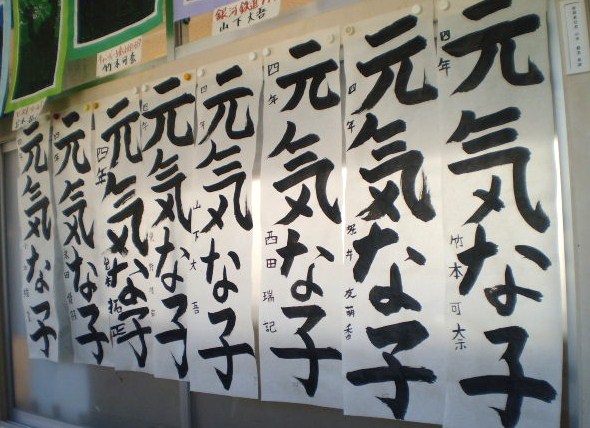 銀河鉄道
山下大吾
竹本可奈
元気な子
四年 竹本可奈
元気な子
四年 堀井友萌香
元気な子
四年 西田瑞記
元気な子
四年 山下大吾
元気な子
四年
元気な子
四年 拓正
元気な子
四年
元気な子